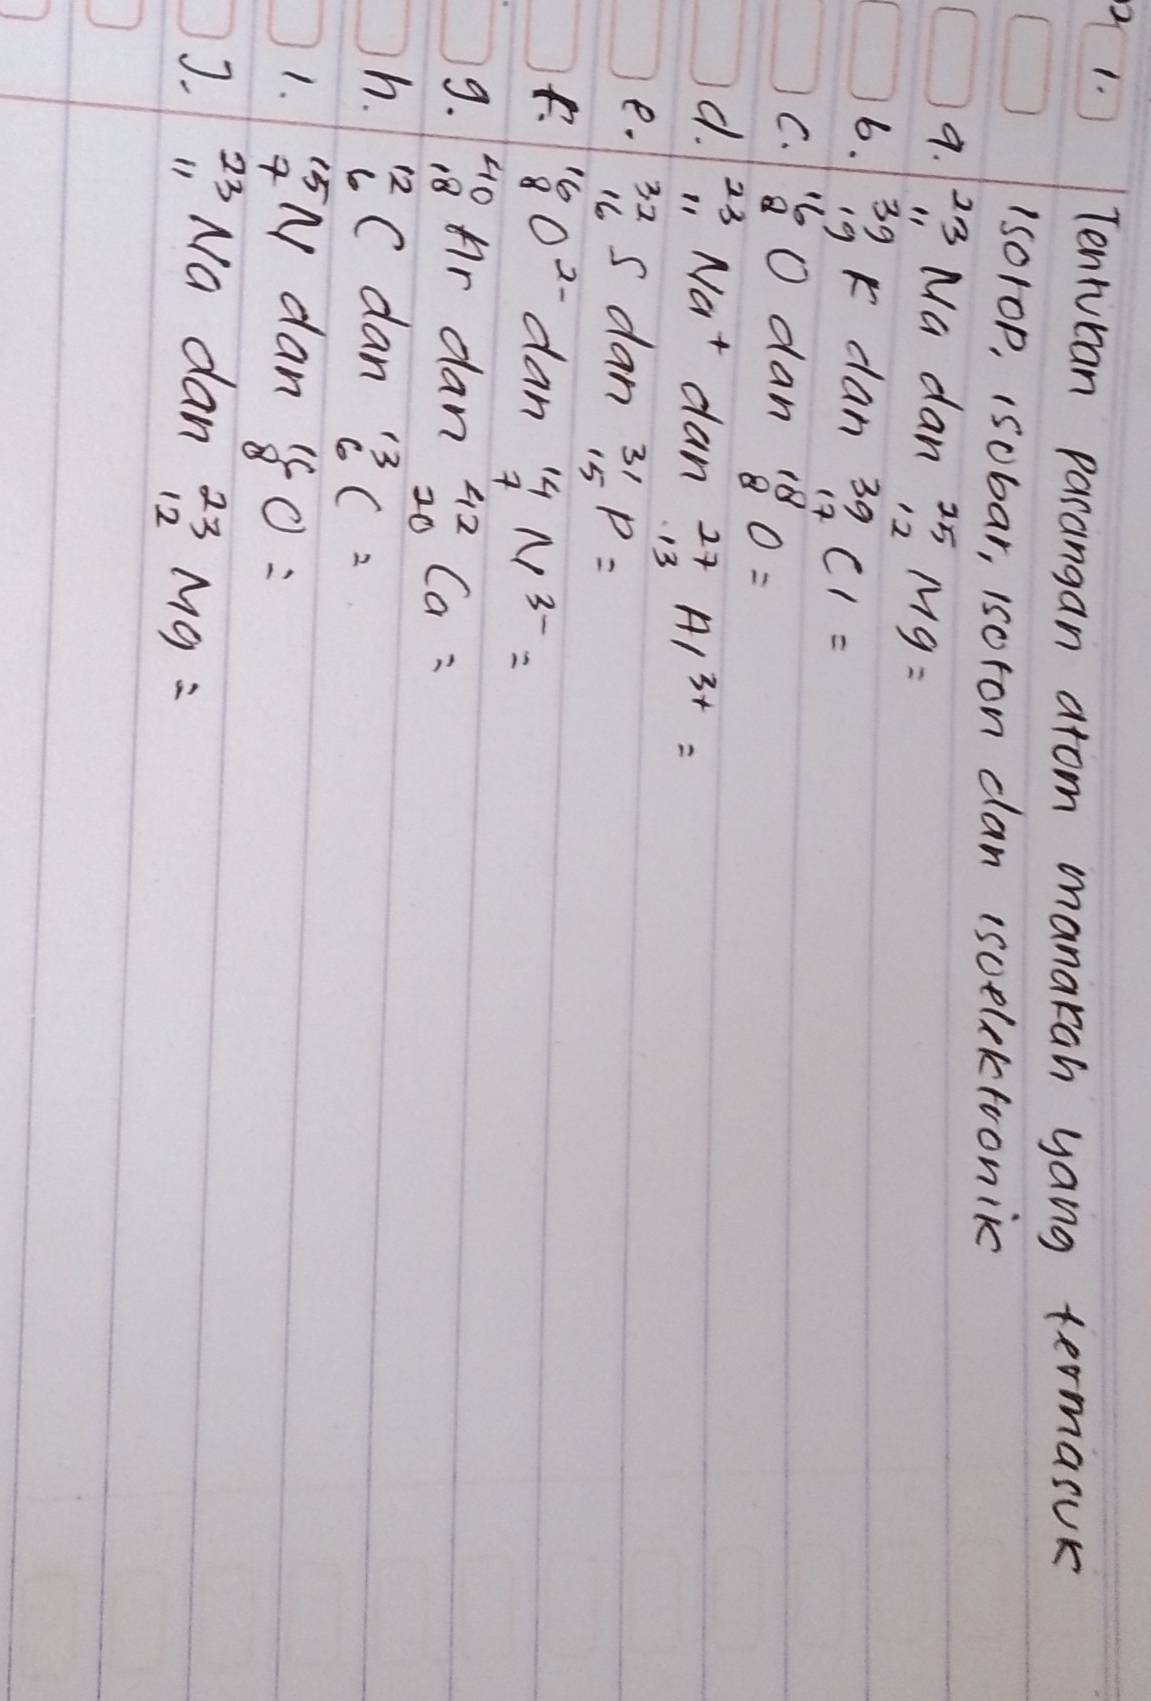 1. Tentukan Pasangan atom manakah yang termasuk
isotop, isobar, isoton dan isoelektronik
a. ²³₁₁Na dan ²⁵₁₂Mg =
b. ³⁹₁₉K dan ³⁹₁₇Cl =
c. ¹⁶₈O dan ¹⁸₈O =
d. ²³₁₁Na⁺ dan ²⁷₁₃Al³⁺ =
e. ³²₁₆S dan ³¹₁₅P =
f. ¹⁶₈O²⁻ dan ¹⁴₇N³⁻ =
g. ⁴⁰₁₈Ar dan ⁴²₂₀Ca =
h. ¹²₆C dan ¹³₆C =
i. ¹⁵₇N dan ¹⁵₈O =
J. ²³₁₁Na dan ²³₁₂Mg =